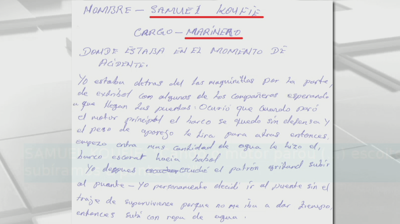 NOMBRE - SAMUEL KOUFIE
CARGO - MARINERO
DONDE ESTABA EN EL MOMENTO DE
ACIDENTE.
Yo estaba detras del las maquinillas por la parte
de estribol com algunos de los compañeros esperando
a que llegan las puertas. Ocuriu que cuando paró
el motor principal el barco se quedo sin defensa y
el peso de aparejo le tira para atras entonces
empeza entra mas cantidad de agua lo hizo el
barco escorat hacia babol.
Yo despues escuché el patrón gritand subir
al puente - Yo personamente decidi ir al puente sin el
traje de supervivence porque no me iva a dar tiempo
entonces subi con ropa de agua.